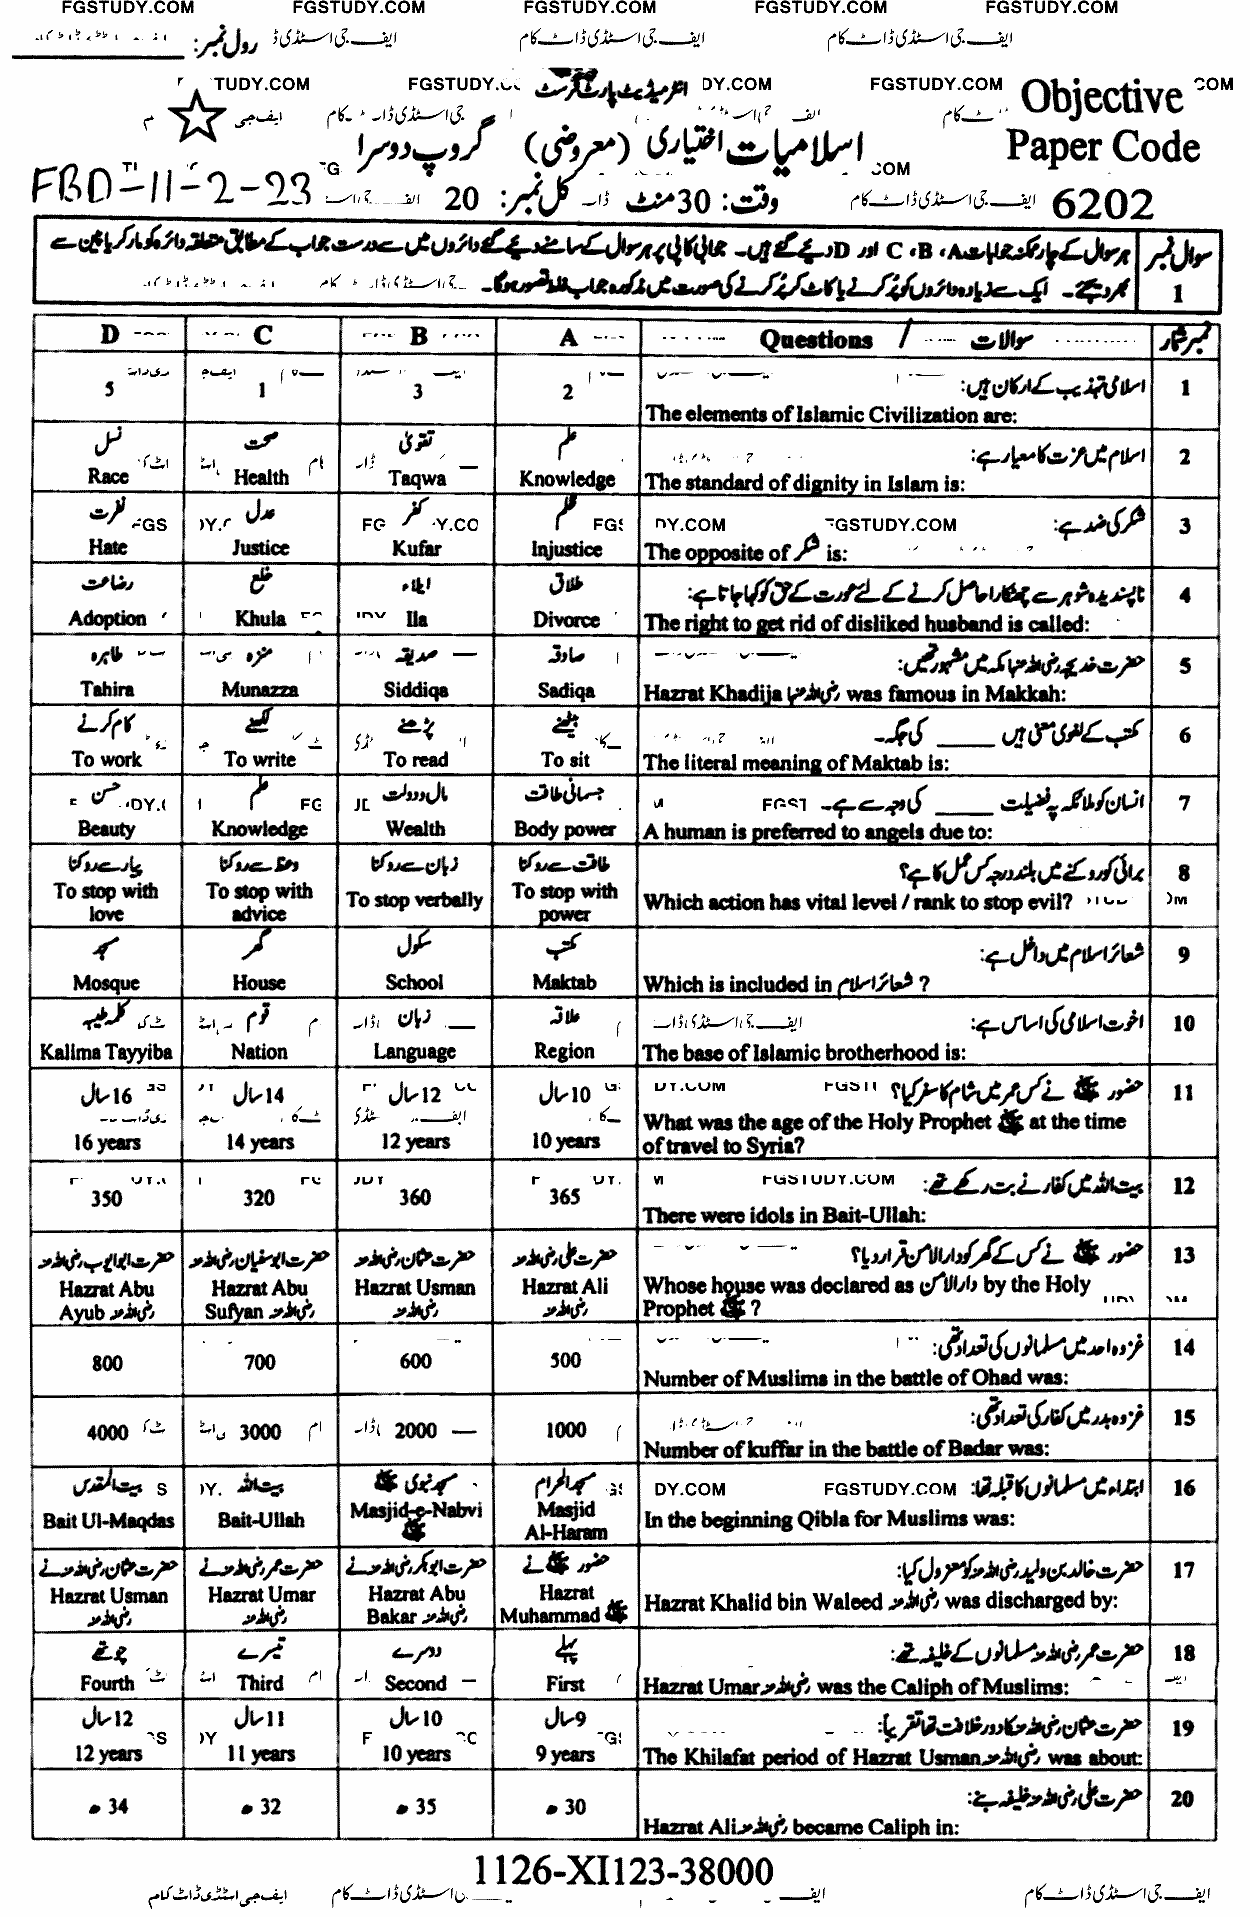 FGSTUDY.COM FGSTUDY.COM FGSTUDY.COM FGSTUDY.COM FGSTUDY.COM
رول نمبر: ایف جی اسٹڈی ڈاٹ کام ایف جی اسٹڈی ڈاٹ کام
TUDY.COM FGSTUDY. انٹرمیڈیٹ پارٹ فرسٹ DY.COM FGSTUDY.COM COM
Objective
Paper Code
6202
اسلامیات اختیاری (معروضی) گروپ دوسرا
FBD-11-2-23
وقت: 30 منٹ کل نمبر: 20
سوال نمبر 1
ہر سوال کے چار ممکنہ جوابات A، B، C اور D دیئے گئے ہیں۔ جوابی کاپی پر ہر سوال کے سامنے دیئے گئے دائروں میں سے درست جواب کے مطابق متعلقہ دائرہ کو مارکر یا پین سے
بھر دیجئے۔ ایک سے زیادہ دائروں کو پُر کرنے یا کاٹ کر پُر کرنے کی صورت میں مذکورہ جواب غلط تصور ہوگا۔
نمبر شمار سوالات / Questions A B C D
1 اسلامی تہذیب کے ارکان ہیں:
The elements of Islamic Civilization are: 2 3 1 5
2 اسلام میں عزت کا معیار ہے: علم تقویٰ صحت نسل
The standard of dignity in Islam is: Knowledge Taqwa Health Race
3 شکر کی ضد ہے: ظلم کفر عدل نفرت
The opposite of شکر is: Injustice Kufar Justice Hate
4 ناپسندیدہ شوہر سے چھٹکارا حاصل کرنے کے لئے عورت کے حق کو کہا جاتا ہے: طلاق ایلاء خلع رضاعت
The right to get rid of disliked husband is called: Divorce Ila Khula Adoption
5 حضرت خدیجہ رضی اللہ عنہا مکہ میں مشہور تھیں: صادقہ صدیقہ منزہ طاہرہ
Hazrat Khadija رضی اللہ عنہا was famous in Makkah: Sadiqa Siddiqa Munazza Tahira
6 مکتب کے لغوی معنی ہیں ____ کی جگہ۔ بیٹھنے پڑھنے لکھنے کام کرنے
The literal meaning of Maktab is: To sit To read To write To work
7 انسان کو ملائکہ پہ فضیلت ____ کی وجہ سے ہے۔ جسمانی طاقت مال و دولت علم حسن
A human is preferred to angels due to: Body power Wealth Knowledge Beauty
8 برائی کو روکنے میں بلند درجہ کس عمل کا ہے؟ طاقت سے روکنا زبان سے روکنا وعظ سے روکنا پیار سے روکنا
Which action has vital level / rank to stop evil? To stop with power To stop verbally To stop with advice To stop with love
9 شعائر اسلام میں داخل ہے: مکتب سکول گھر مسجد
Which is included in شعائر اسلام ? Maktab School House Mosque
10 اخوت اسلامی کی اساس ہے: علاقہ زبان قوم کلمہ طیبہ
The base of Islamic brotherhood is: Region Language Nation Kalima Tayyiba
11 حضور ﷺ نے کس عمر میں شام کا سفر کیا؟ 10 سال 12 سال 14 سال 16 سال
What was the age of the Holy Prophet ﷺ at the time
of travel to Syria? 10 years 12 years 14 years 16 years
12 بیت اللہ میں کفار نے بت رکھے تھے:
There were idols in Bait-Ullah: 365 360 320 350
13 حضور ﷺ نے کس کے گھر کو دارالامن قرار دیا؟ حضرت علی رضی اللہ عنہ حضرت عثمان رضی اللہ عنہ حضرت ابوسفیان رضی اللہ عنہ حضرت ابوایوب رضی اللہ عنہ
Whose house was declared as دارالامن by the Holy
Prophet ﷺ ? Hazrat Ali رضی اللہ عنہ Hazrat Usman رضی اللہ عنہ Hazrat Abu Sufyan رضی اللہ عنہ Hazrat Abu Ayub رضی اللہ عنہ
14 غزوہ احد میں مسلمانوں کی تعداد تھی:
Number of Muslims in the battle of Ohad was: 500 600 700 800
15 غزوہ بدر میں کفار کی تعداد تھی:
Number of kuffar in the battle of Badar was: 1000 2000 3000 4000
16 ابتداء میں مسلمانوں کا قبلہ تھا: مسجد الحرام مسجد نبوی ﷺ بیت اللہ بیت المقدس
In the beginning Qibla for Muslims was: Masjid Al-Haram Masjid-e-Nabvi ﷺ Bait-Ullah Bait Ul-Maqdas
17 حضرت خالد بن ولید رضی اللہ عنہ کو معزول کیا: حضور ﷺ نے حضرت ابوبکر رضی اللہ عنہ نے حضرت عمر رضی اللہ عنہ نے حضرت عثمان رضی اللہ عنہ نے
Hazrat Khalid bin Waleed رضی اللہ عنہ was discharged by: Hazrat Muhammad ﷺ Hazrat Abu Bakar رضی اللہ عنہ Hazrat Umar رضی اللہ عنہ Hazrat Usman رضی اللہ عنہ
18 حضرت عمر رضی اللہ عنہ مسلمانوں کے خلیفہ تھے: پہلے دوسرے تیسرے چوتھے
Hazrat Umar رضی اللہ عنہ was the Caliph of Muslims: First Second Third Fourth
19 حضرت عثمان رضی اللہ عنہ کا دور خلافت تھا تقریباً: 9 سال 10 سال 11 سال 12 سال
The Khilafat period of Hazrat Usman رضی اللہ عنہ was about: 9 years 10 years 11 years 12 years
20 حضرت علی رضی اللہ عنہ خلیفہ بنے:
Hazrat Ali رضی اللہ عنہ became Caliph in: 30 ھ 35 ھ 32 ھ 34 ھ
1126-XI123-38000
ایف جی اسٹڈی ڈاٹ کام ایف جی اسٹڈی ڈاٹ کام ایف جی اسٹڈی ڈاٹ کام